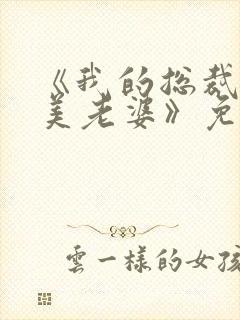 《我的总裁
美老婆》免
雲一样的女孩